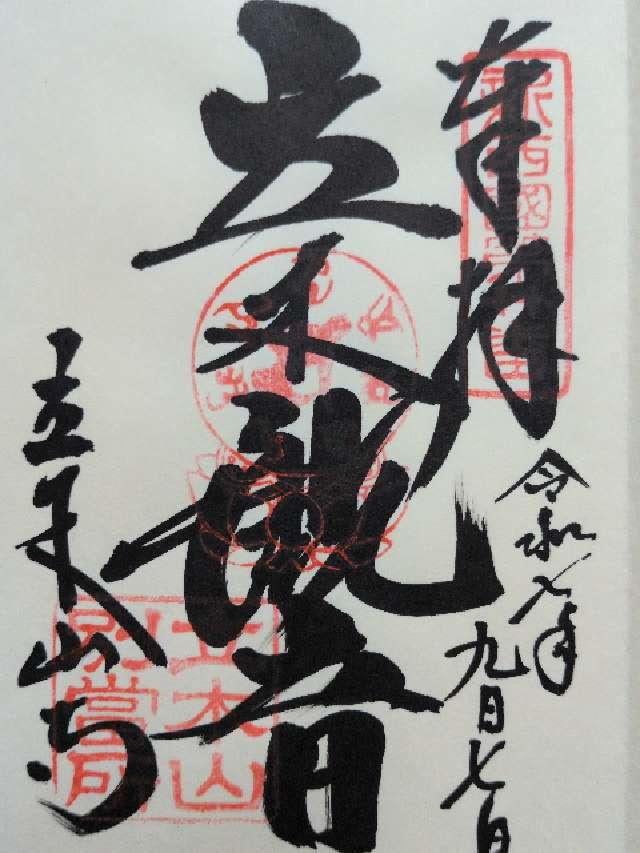 奉拝
令和七年
九月七日
立木観音
立木山寺
立木山
別當局